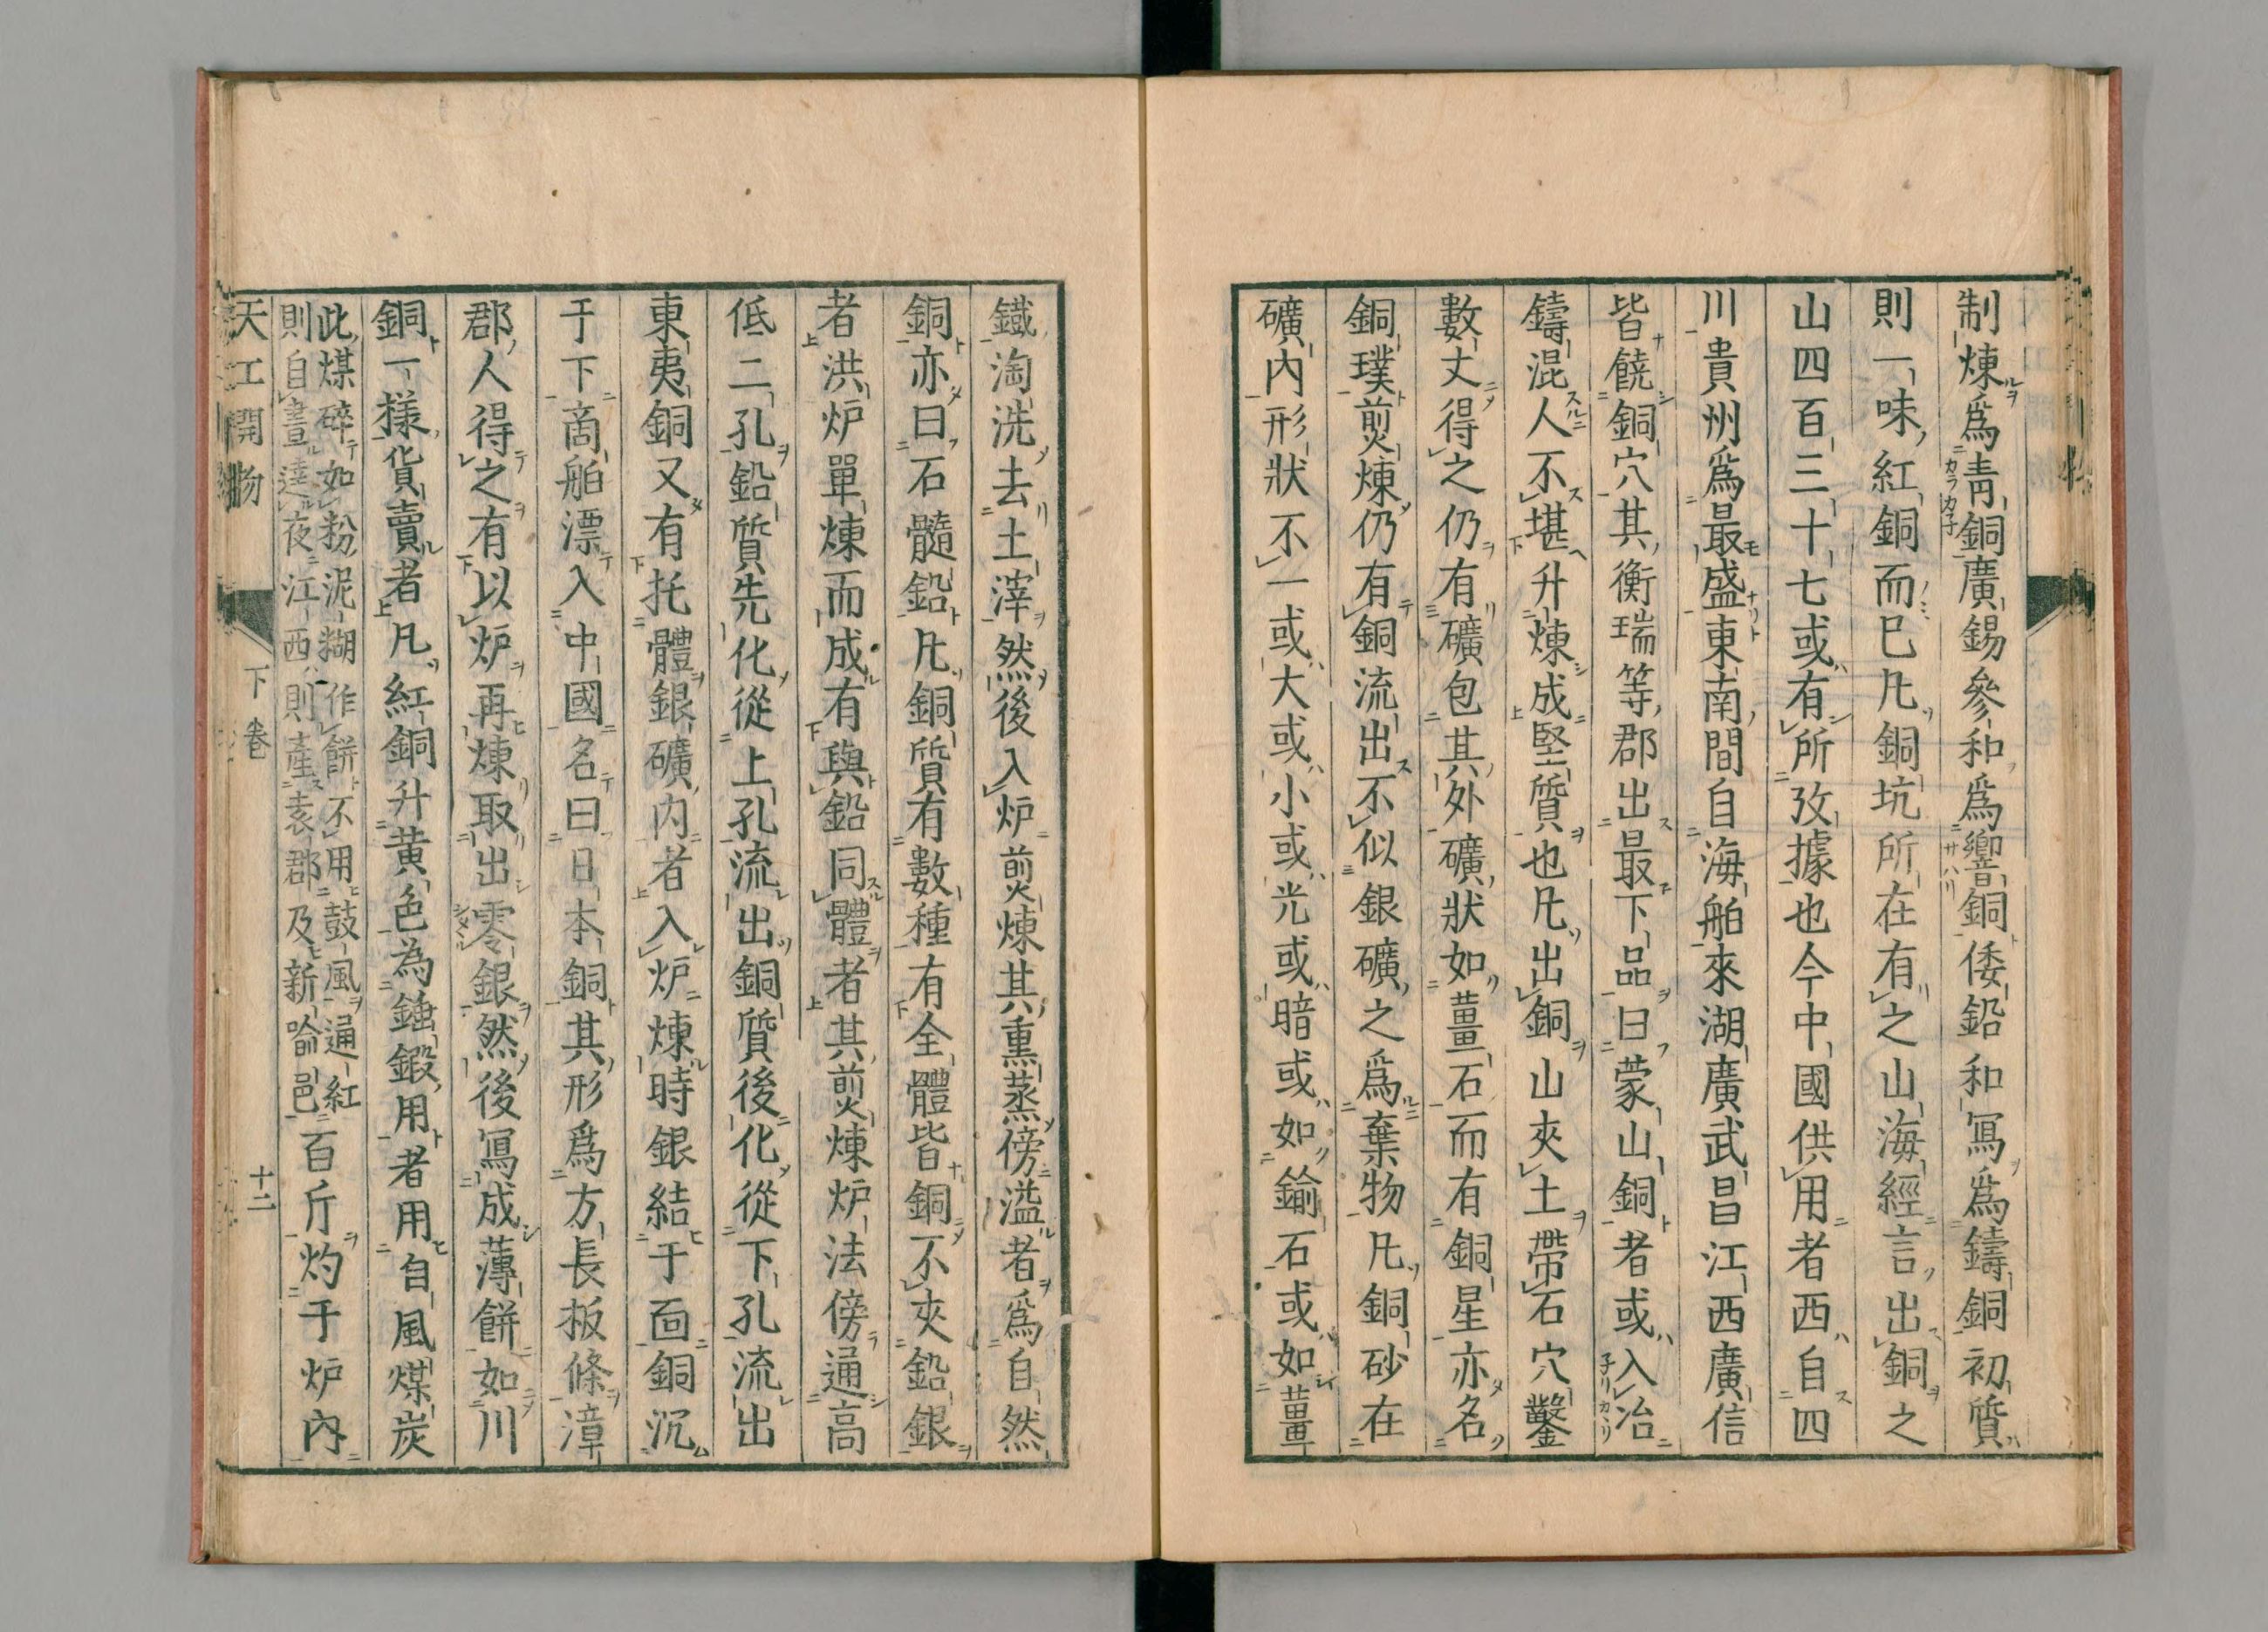 制煉爲青銅廣錫參和爲響銅倭鉛和寫爲鑄銅初質
則一味紅銅而已凡銅坑所在有之山海經言出銅之
山四百三十七或有所攷據也今中國供用者西自四
川貴州爲最盛東南間自海舶來湖廣武昌江西廣信
皆饒銅穴其衡瑞等郡出最下品曰蒙山銅者或入冶
鑄混人不堪升煉成堅質也凡出銅山夾土帶石穴鑿
數丈得之仍有礦包其外礦狀如薑石而有銅星亦名
銅璞煎煉仍有銅流出不似銀礦之爲棄物凡銅砂在
礦內形狀不一或大或小或光或暗或如鍮石或如薑
鐵淘洗去土滓然後入炉煎煉其熏蒸傍溢者爲自然
銅亦曰石髓鉛凡銅質有數種有全體皆銅不夾鉛銀
者洪炉單煉而成有與鉛同體者其煎煉炉法傍通高
低二孔鉛質先化從上孔流出銅質後化從下孔流出
東夷銅又有托體銀礦內者入炉煉時銀結于面銅沉
于下商舶漂入中國名曰日本銅其形爲方長板條漳
郡人得之有以炉再煉取出零銀然後寫成薄餅如川
銅一樣貨賣者凡紅銅升黃色為錘鍛用者用自風煤炭
此煤碎如粉泥糊作餅不用鼓風通紅
則自晝達夜江西則產袁郡及新喻邑
百斤灼于炉內
天工開物
下卷
十二